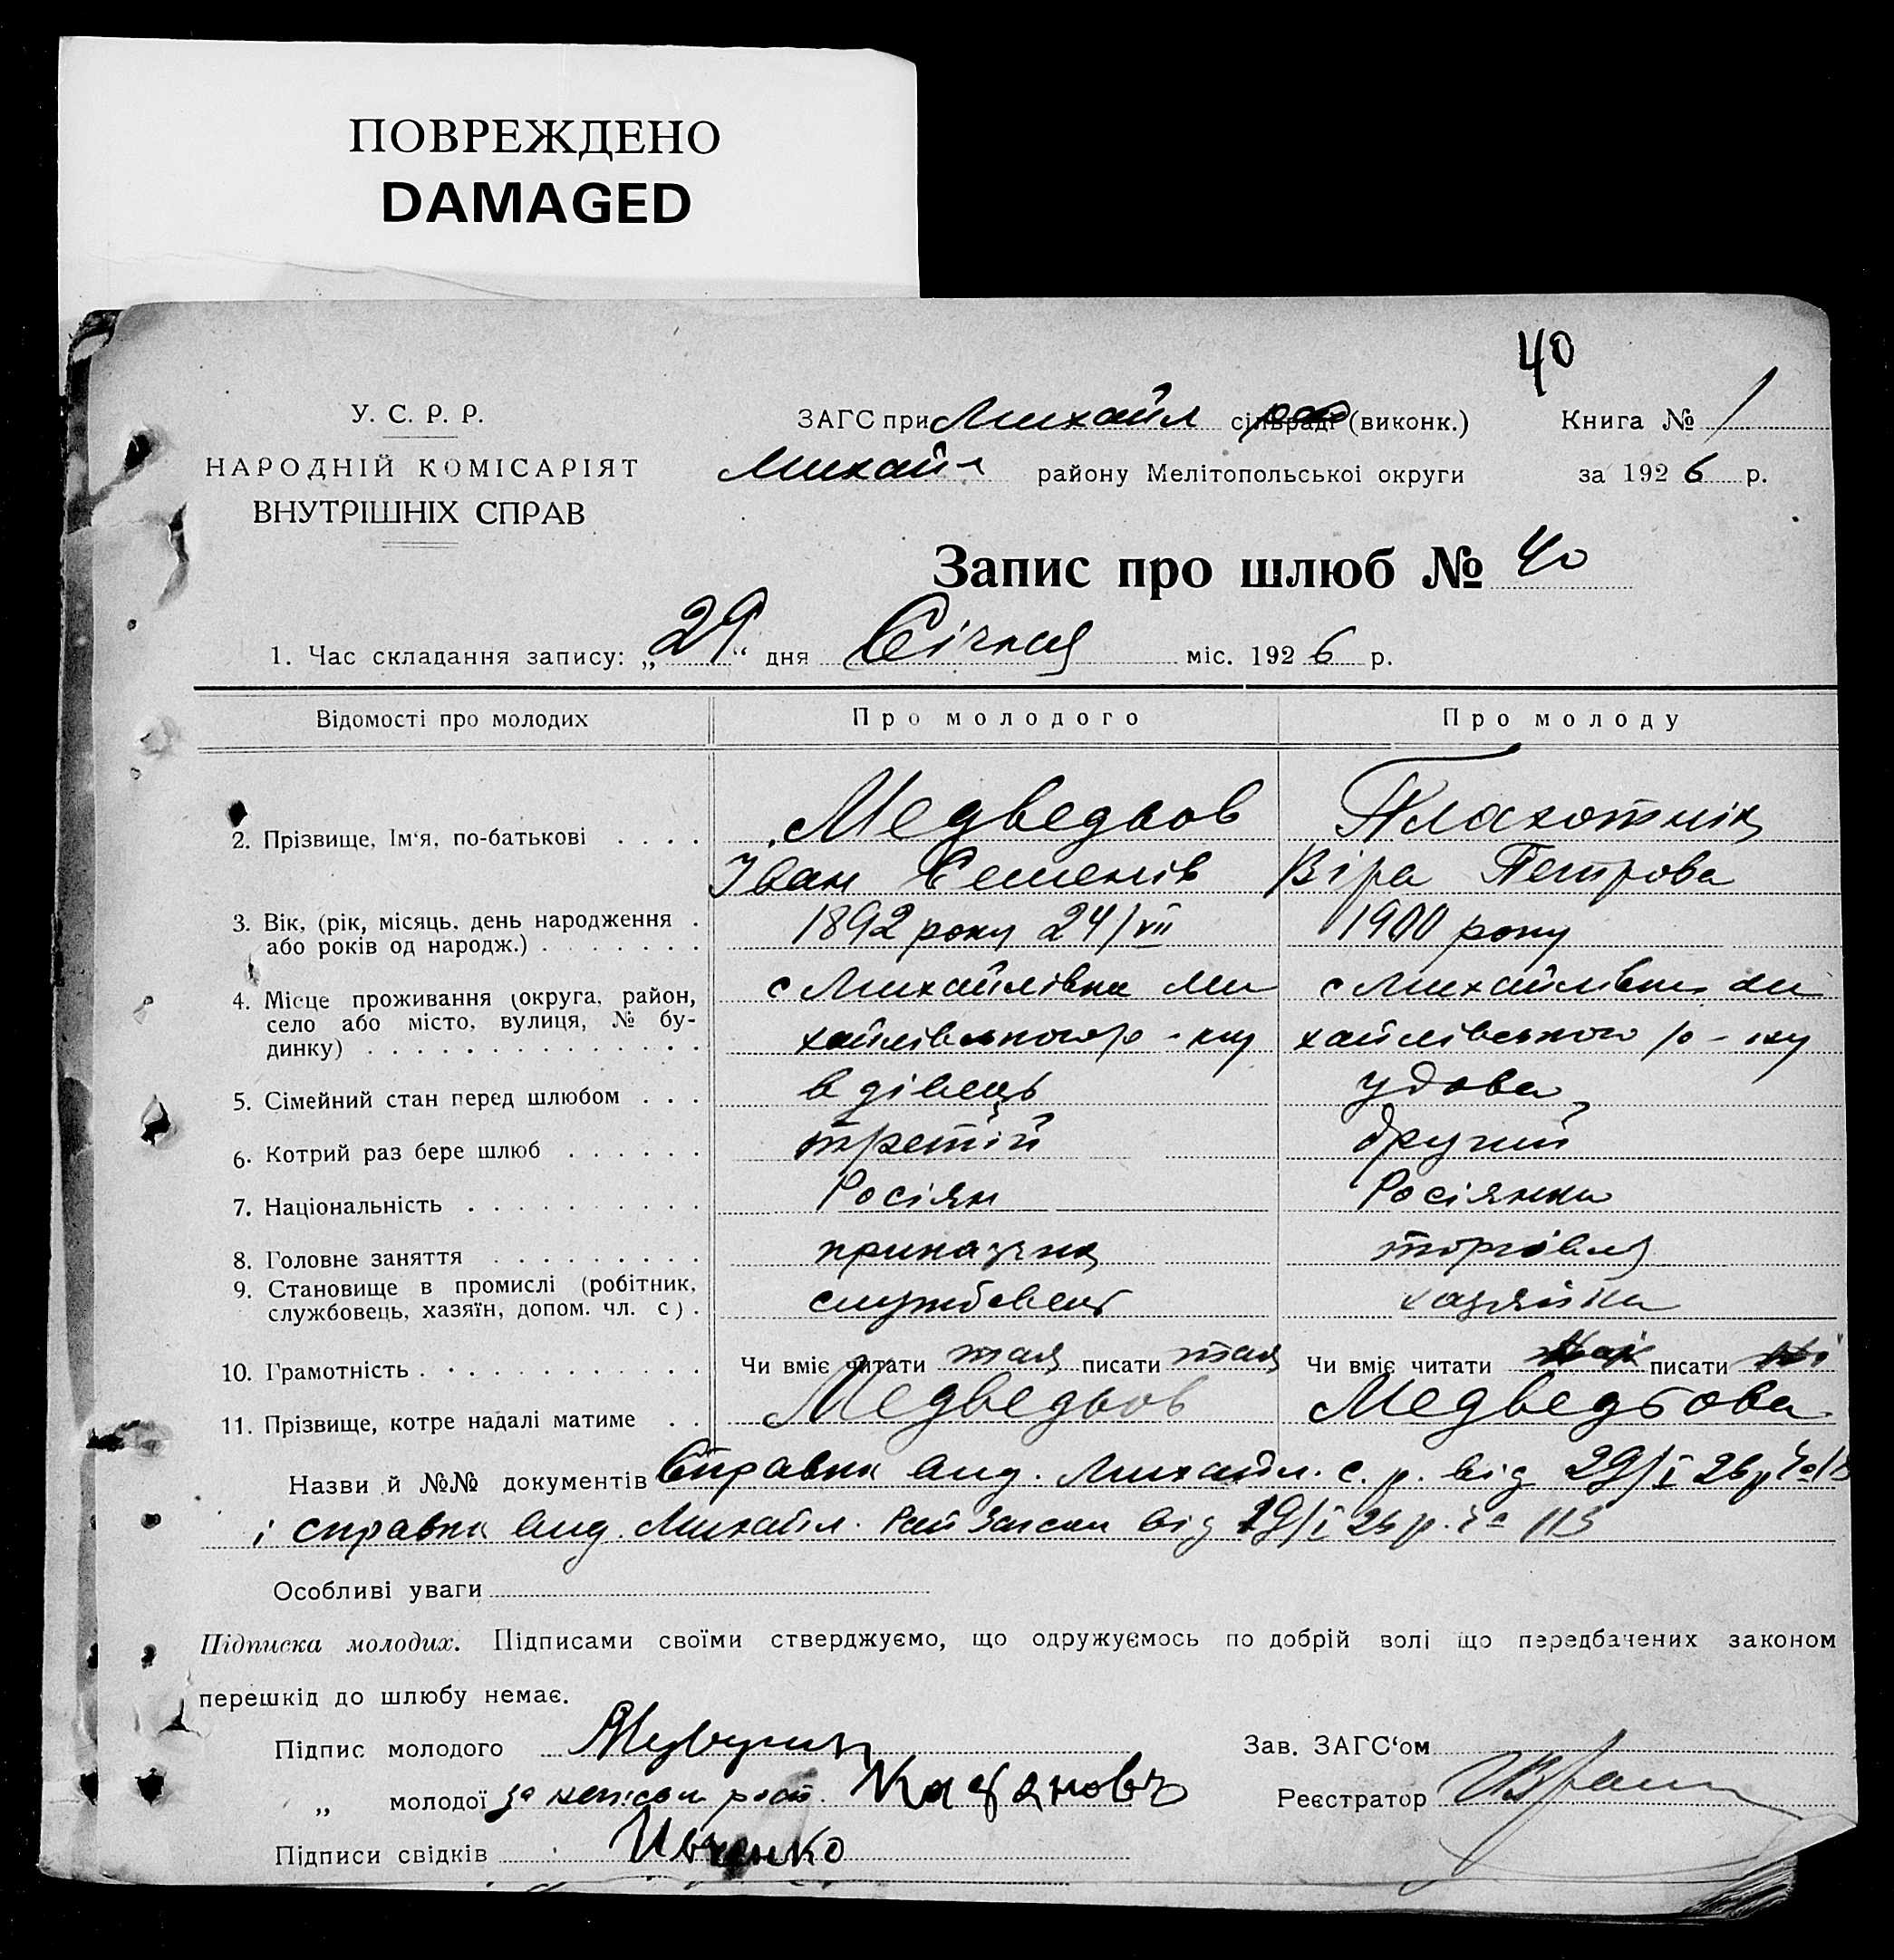 ПОВРЕЖДЕНО
DAMAGED
40
У. С. Р. Р.
НАРОДНІЙ КОМІСАРІЯТ
ВНУТРІШНІХ СПРАВ
ЗАГС при Михайл сільраді (виконк.)
Михайл району Мелітопольської округи
Книга № 1
за 1926 р.
Запис про шлюб № 40
1. Час складання запису: „29“ дня Січня міс. 1926 р.
Відомості про молодих Про молодого Про молоду
2. Прізвище, Ім‘я, по-батькові . . . . Медведьов Плахотнік
Іван Семенів Віра Петрова
3. Вік, (рік, місяць, день народження .
або років од народж.) . . . . . . . 1892 року 24/VII 1900 року
4. Місце проживання (округа, район, с Михайлівка Ми с Михайлівка Ми
село або місто, вулиця, № бу-
динку) . . . . . . . . . . . . . . хайлівського р-ну хайлівського р-ну
5. Сімейний стан перед шлюбом . . . вдівець удова
6. Котрий раз бере шлюб . . . . . . третій другий
7. Національність . . . . . . . . . . Росіян Росіянка
8. Головне заняття . . . . . . . . . торгівля
9. Становище в промислі (робітник,
службовець, хазяїн, допом. чл. с) . службовець хазяйка
10. Грамотність . . . . . . . . . . . Чи вміє читати так писати так Чи вміє читати писати ні
11. Прізвище, котре надалі матиме . . Медведьов Медведьова
Назви й №№ документів Справка вид. Михайл. с. р. від 29/I 26 р
і справка вид. Михайл. Рай Загсам від 29/I 26 р. № 113
Особливі уваги
Підписка молодих. Підписами своїми стверджуємо, що одружуємось по добрій волі що передбачених законом
перешкід до шлюбу немає.
Підпис молодого
Зав. ЗАГС‘ом
„ молодої за
Реєстратор
Підписи свідків Ивченко